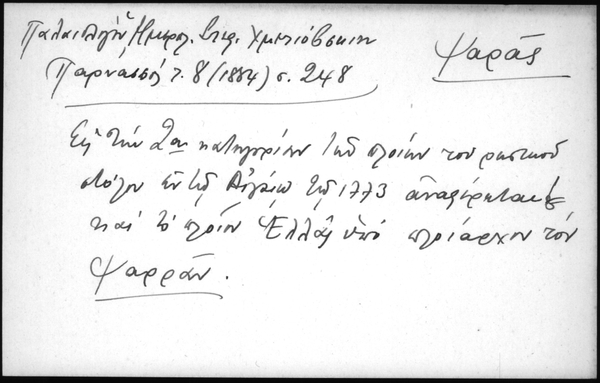 Παλαιολόγου Ημερολ. Στεφ. Χμετέβσκιη
Ψαρᾶς
Παρνασσός τ. 8 (1884) σ. 248
Εἰς τὴν 2αν κατηγορίαν τῶν πλοίων τοῦ ρωσικοῦ
στόλου ἐν τῷ Αἰγαίῳ τῷ 1773 ἀναφέρεται
καὶ τὸ πλοῖον Ἑλλὰς ὑπὸ πλοίαρχον τὸν
Ψαρρᾶν.